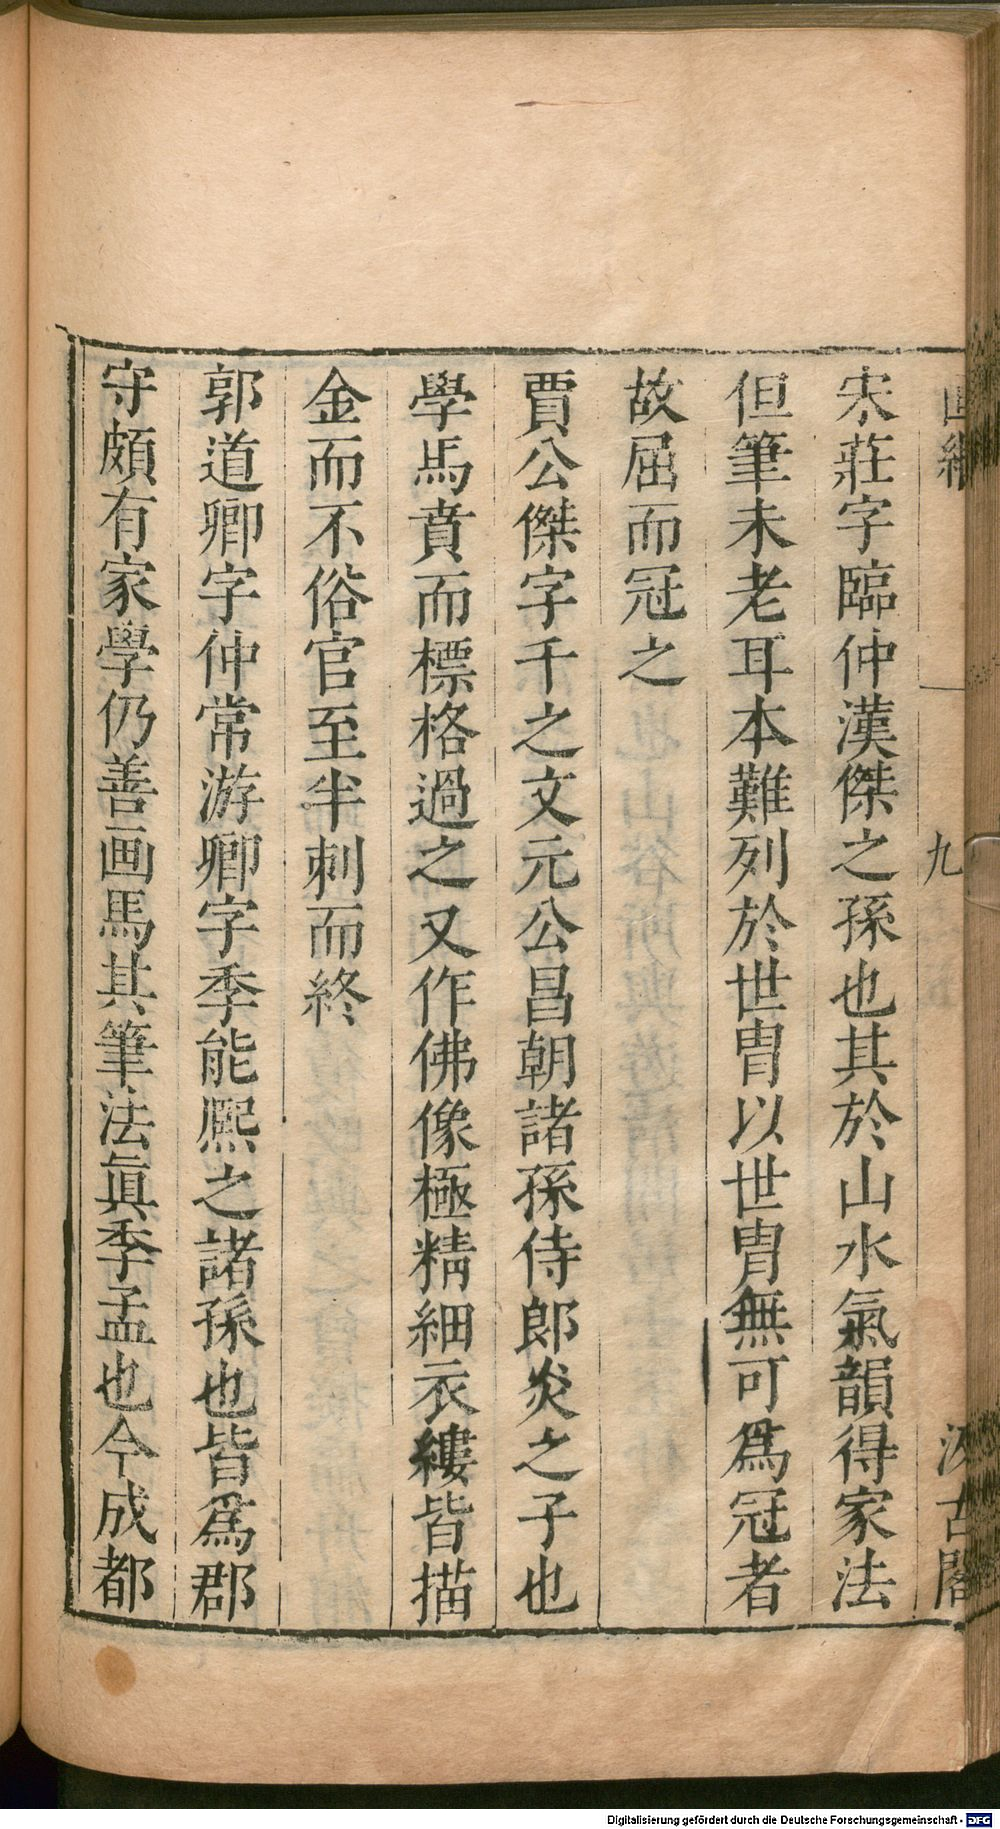 画繼
九
汲古閣
宋莊字臨仲漢傑之孫也其於山水氣韻得家法
但筆未老耳本難列於世胄以世胄無可爲冠者
故屈而冠之
賈公傑字千之文元公昌朝諸孫侍郎炎之子也
學馬賁而標格過之又作佛像極精細衣縷皆描
金而不俗官至半刺而終
郭道卿字仲常游卿字季能熈之諸孫也皆爲郡
守頗有家學仍善画馬其筆法眞季孟也今成都
Digitalisierung gefördert durch die Deutsche Forschungsgemeinschaft - DFG